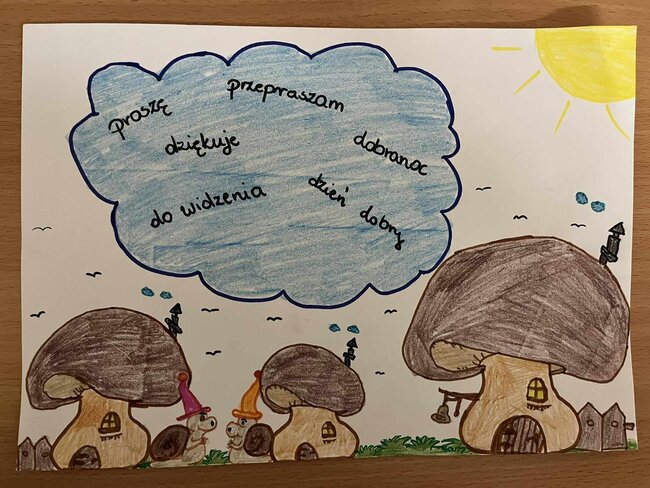 proszę
przepraszam
dziękuje
dobranoc
do widzenia
dzień dobry